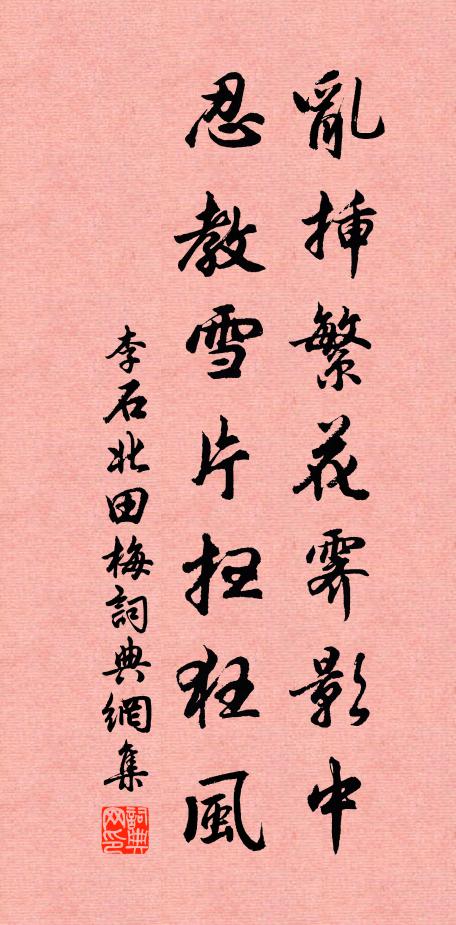 亂挿繁花霽影中
忍教雪片抂狂風
李石北田梅詞典網集
詞典网印